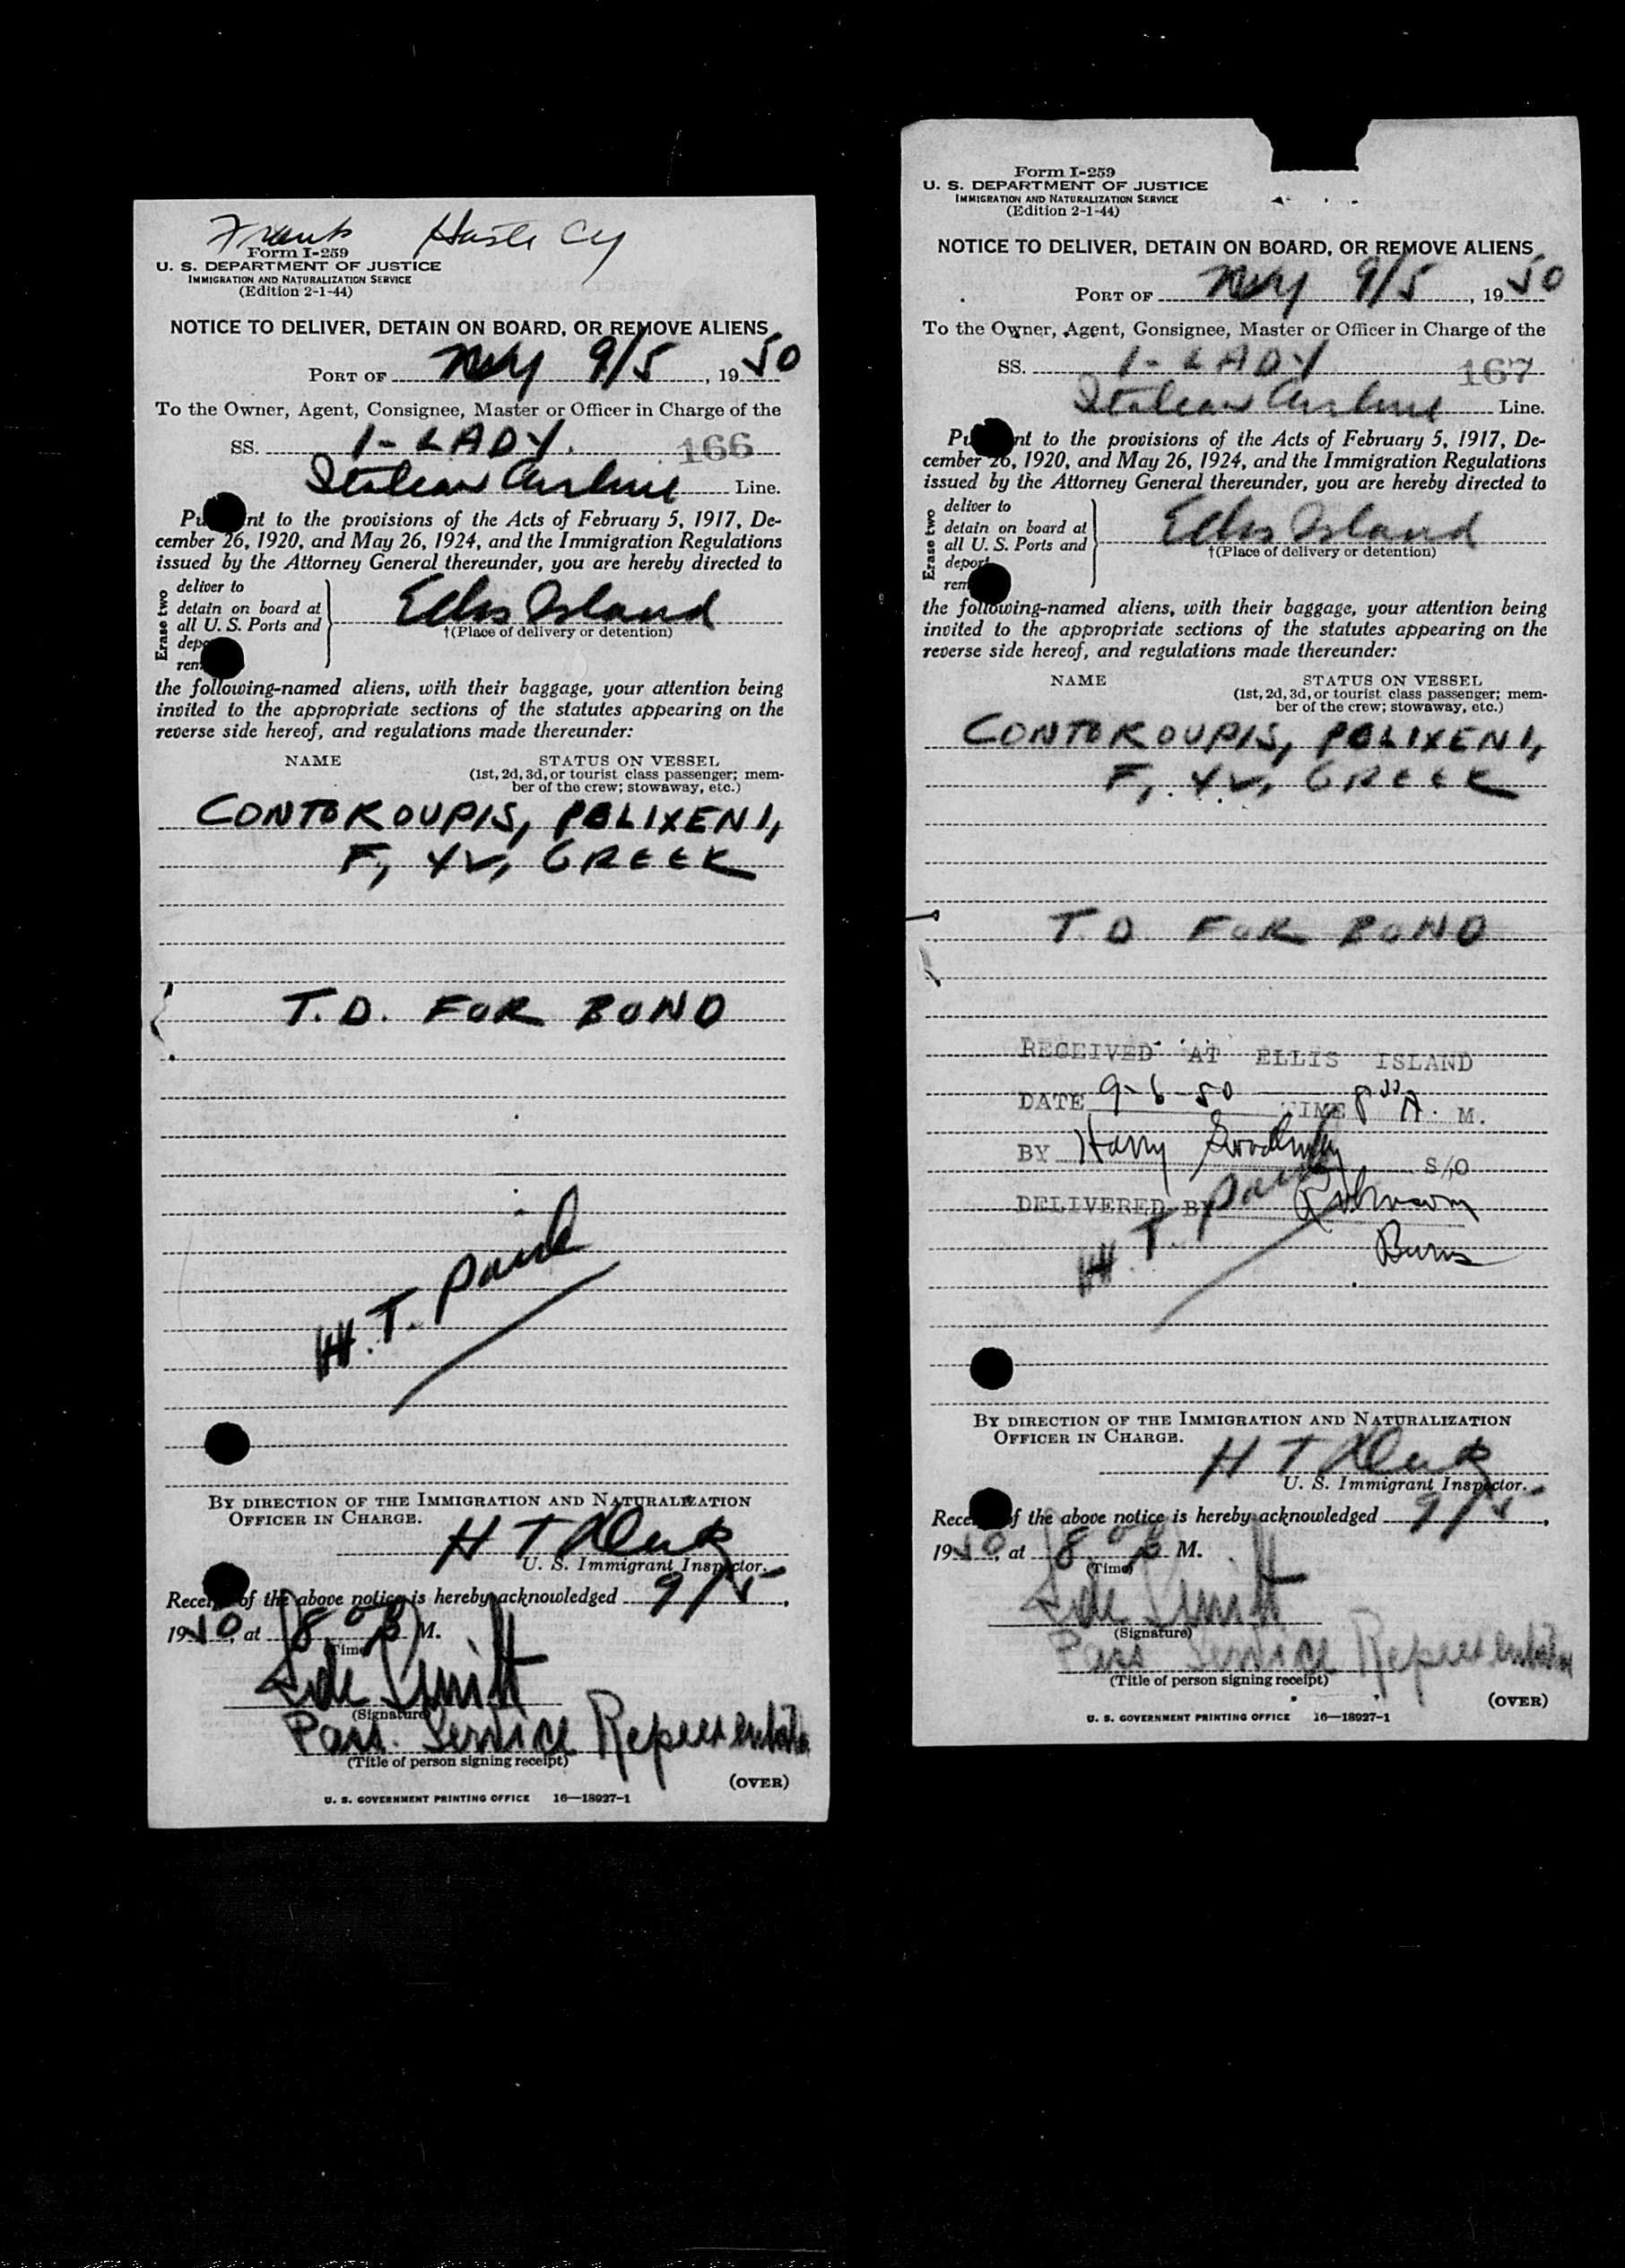 Frank
Form I-259
U. S. DEPARTMENT OF JUSTICE
IMMIGRATION AND NATURALIZATION SERVICE
(Edition 2-1-44)
NOTICE TO DELIVER, DETAIN ON BOARD, OR REMOVE ALIENS
PORT OF NY 9/5, 1950
To the Owner, Agent, Consignee, Master or Officer in Charge of the
SS. I-LADY. 166
Italian Airline Line.
Pu nt to the provisions of the Acts of February 5, 1917, De-
cember 26, 1920, and May 26, 1924, and the Immigration Regulations
issued by the Attorney General thereunder, you are hereby directed to
Erase two
deliver to
detain on board at
all U. S. Ports and
dep
rem
Ellis Island
†(Place of delivery or detention)
the following-named aliens, with their baggage, your attention being
invited to the appropriate sections of the statutes appearing on the
reverse side hereof, and regulations made thereunder:
NAME STATUS ON VESSEL
(1st, 2d, 3d, or tourist class passenger; mem-
ber of the crew; stowaway, etc.)
CONTOROUPIS, POLIXENI,
F, GREEK
T.D. FOR BOND
H.T. paid
BY DIRECTION OF THE IMMIGRATION AND NATURALIZATION
OFFICER IN CHARGE.
H T
U. S. Immigrant Inspector.
Receipt of the above notice is hereby acknowledged 9/5,
1950, at 8 00 P M.
(Time)
Smith
(Signature)
Pass. Service Representative
(Title of person signing receipt)
(OVER)
U. S. GOVERNMENT PRINTING OFFICE 16—18027-1
Form I-259
U. S. DEPARTMENT OF JUSTICE
IMMIGRATION AND NATURALIZATION SERVICE
(Edition 2-1-44)
NOTICE TO DELIVER, DETAIN ON BOARD, OR REMOVE ALIENS
PORT OF NY 9/5, 1950
To the Owner, Agent, Consignee, Master or Officer in Charge of the
SS. I-LADY 167
Italian Airline Line.
Pu nt to the provisions of the Acts of February 5, 1917, De-
cember 26, 1920, and May 26, 1924, and the Immigration Regulations
issued by the Attorney General thereunder, you are hereby directed to
Erase two
deliver to
detain on board at
all U. S. Ports and
deport
rem
Ellis Island
†(Place of delivery or detention)
the following-named aliens, with their baggage, your attention being
invited to the appropriate sections of the statutes appearing on the
reverse side hereof, and regulations made thereunder:
NAME STATUS ON VESSEL
(1st, 2d, 3d, or tourist class passenger; mem-
ber of the crew; stowaway, etc.)
CONTOROUPIS, POLIXENI,
F, GREEK
T.D. FOR BOND
RECEIVED AT ELLIS ISLAND
DATE 9-6-50 TIME 8 00 A. M.
BY Harry S/O
DELIVERED BY Robinson
Burns
H.T. paid
BY DIRECTION OF THE IMMIGRATION AND NATURALIZATION
OFFICER IN CHARGE.
H T
U. S. Immigrant Inspector.
Rece of the above notice is hereby acknowledged 9/5,
1950, at 8 00 P M.
(Time)
Smith
(Signature)
Pass Service Representative
(Title of person signing receipt)
(OVER)
U. S. GOVERNMENT PRINTING OFFICE 16—18027-1